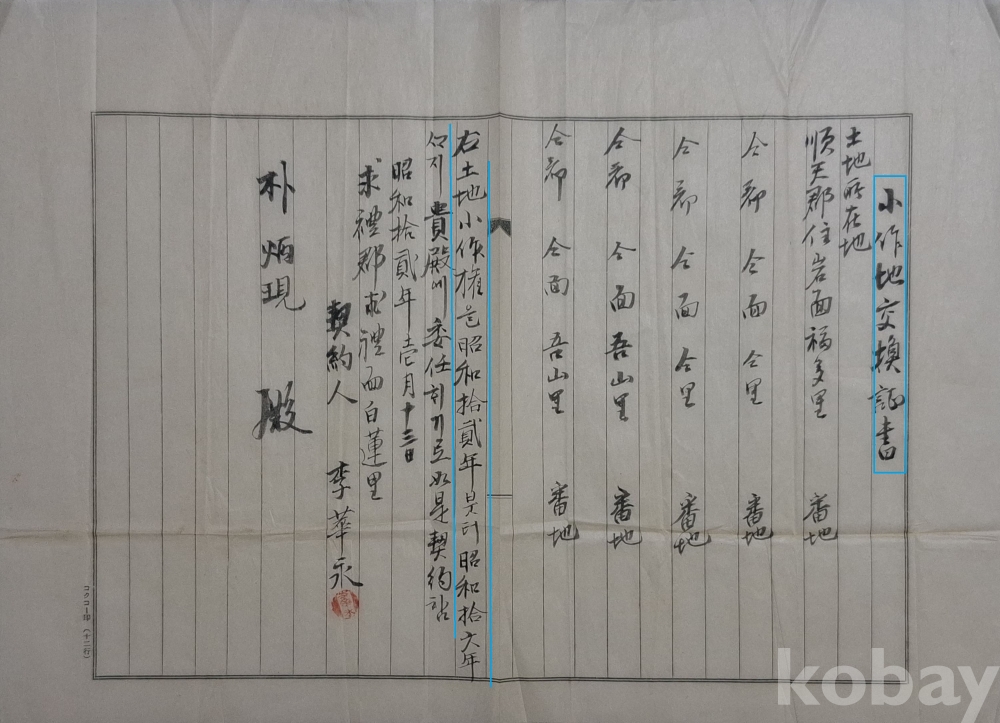 小作地交換証書
土地所在地
順天郡住岩面福多里 番地
仝郡 仝面 仝里 番地
仝郡 仝面 仝里 番地
仝郡 仝面 吾山里 番地
仝郡 仝面 吾山里 番地
右土地小作權을昭和拾貳年브터昭和拾六年
ᄭᆞ지 貴殿에委任하기로如是契約함
昭和拾貳年壹月十三日
求禮郡求禮面白蓮里
契約人 李華永
朴炳現 殿
コクヨー印 (十二行)
kobay